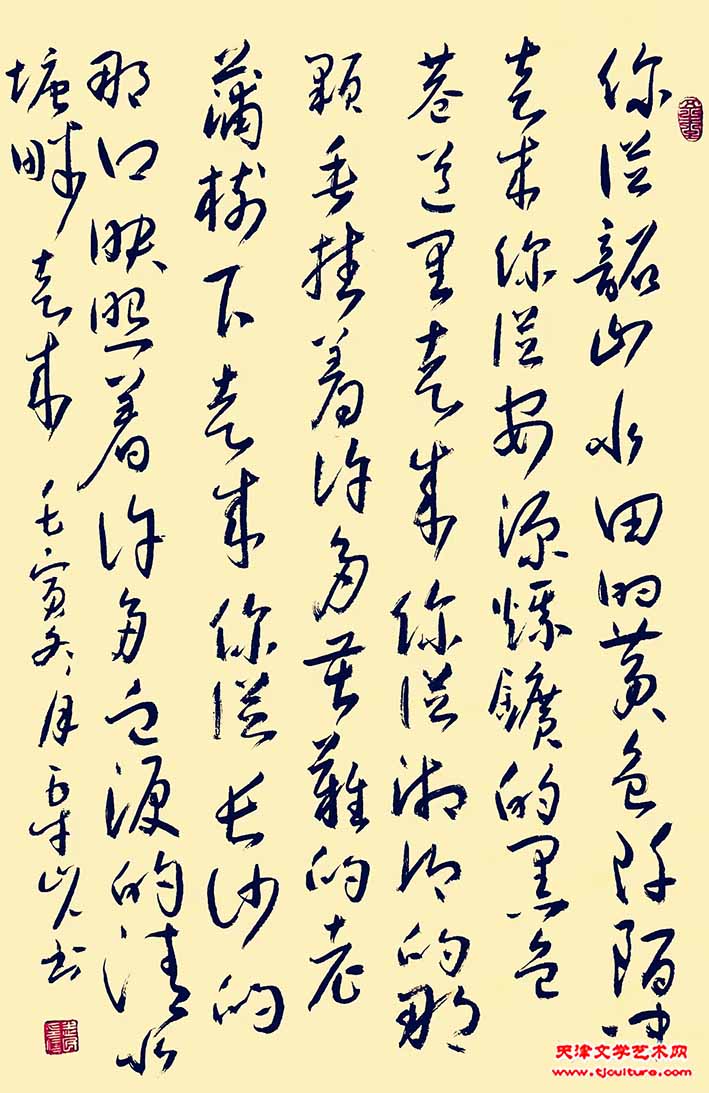 你从韶山水田的黄色阡陌中
走来你从安源煤矿的黑色
巷道里走来你从湘潭的那
颗垂挂着许多苦难的老
蒲树下走来你从长沙的
那口映照着许多血泪的清水
塘畔走来 壬寅冬月 书
天津文学艺术网
www.tjculture.com